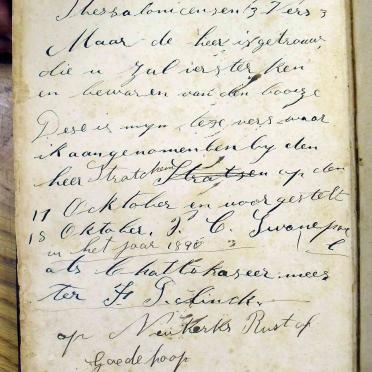 Thessalonicensen 3 Vers 3
Maar de heer is getrouw
die u zal versterken
en bewaren van den booze
Dese is myn leze vers waar
ik aangenomenten by den
heer Stratchen Stratsen op den
17 Ocktober en voorgestelt
18 Oktober, P. C. Swanepoel
in het jaar 1890
als
ter
op Nieukerks Rust of
Goedehoop